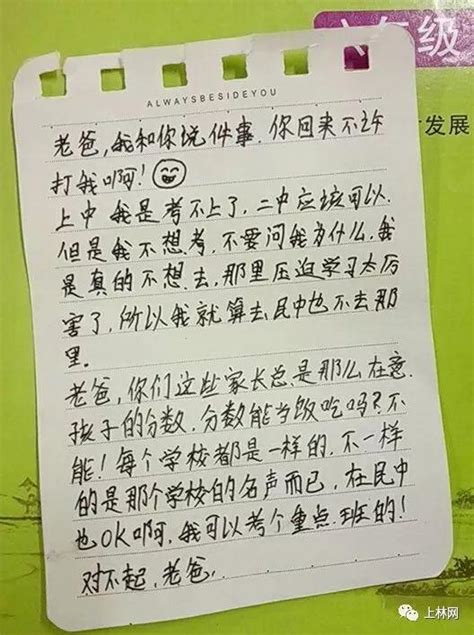 六年级
发展
ALWAYSBESIDEYOU
老爸,我和你说件事.你回来不许
打我啊!
上中 我是考不上了,二中应该可以.
但是我不想考,不要问我为什么,我
是真的不想去,那里压迫学习太厉
害了,所以我就算去民中也不去那
里。
老爸,你们这些家长总是那么在意
孩子的分数.分数能当饭吃吗?不
能!每个学校都是一样的.不一样
的是那个学校的名声而已,在民中
也OK啊,我可以考个重点班的!
对不起,老爸,
上林网